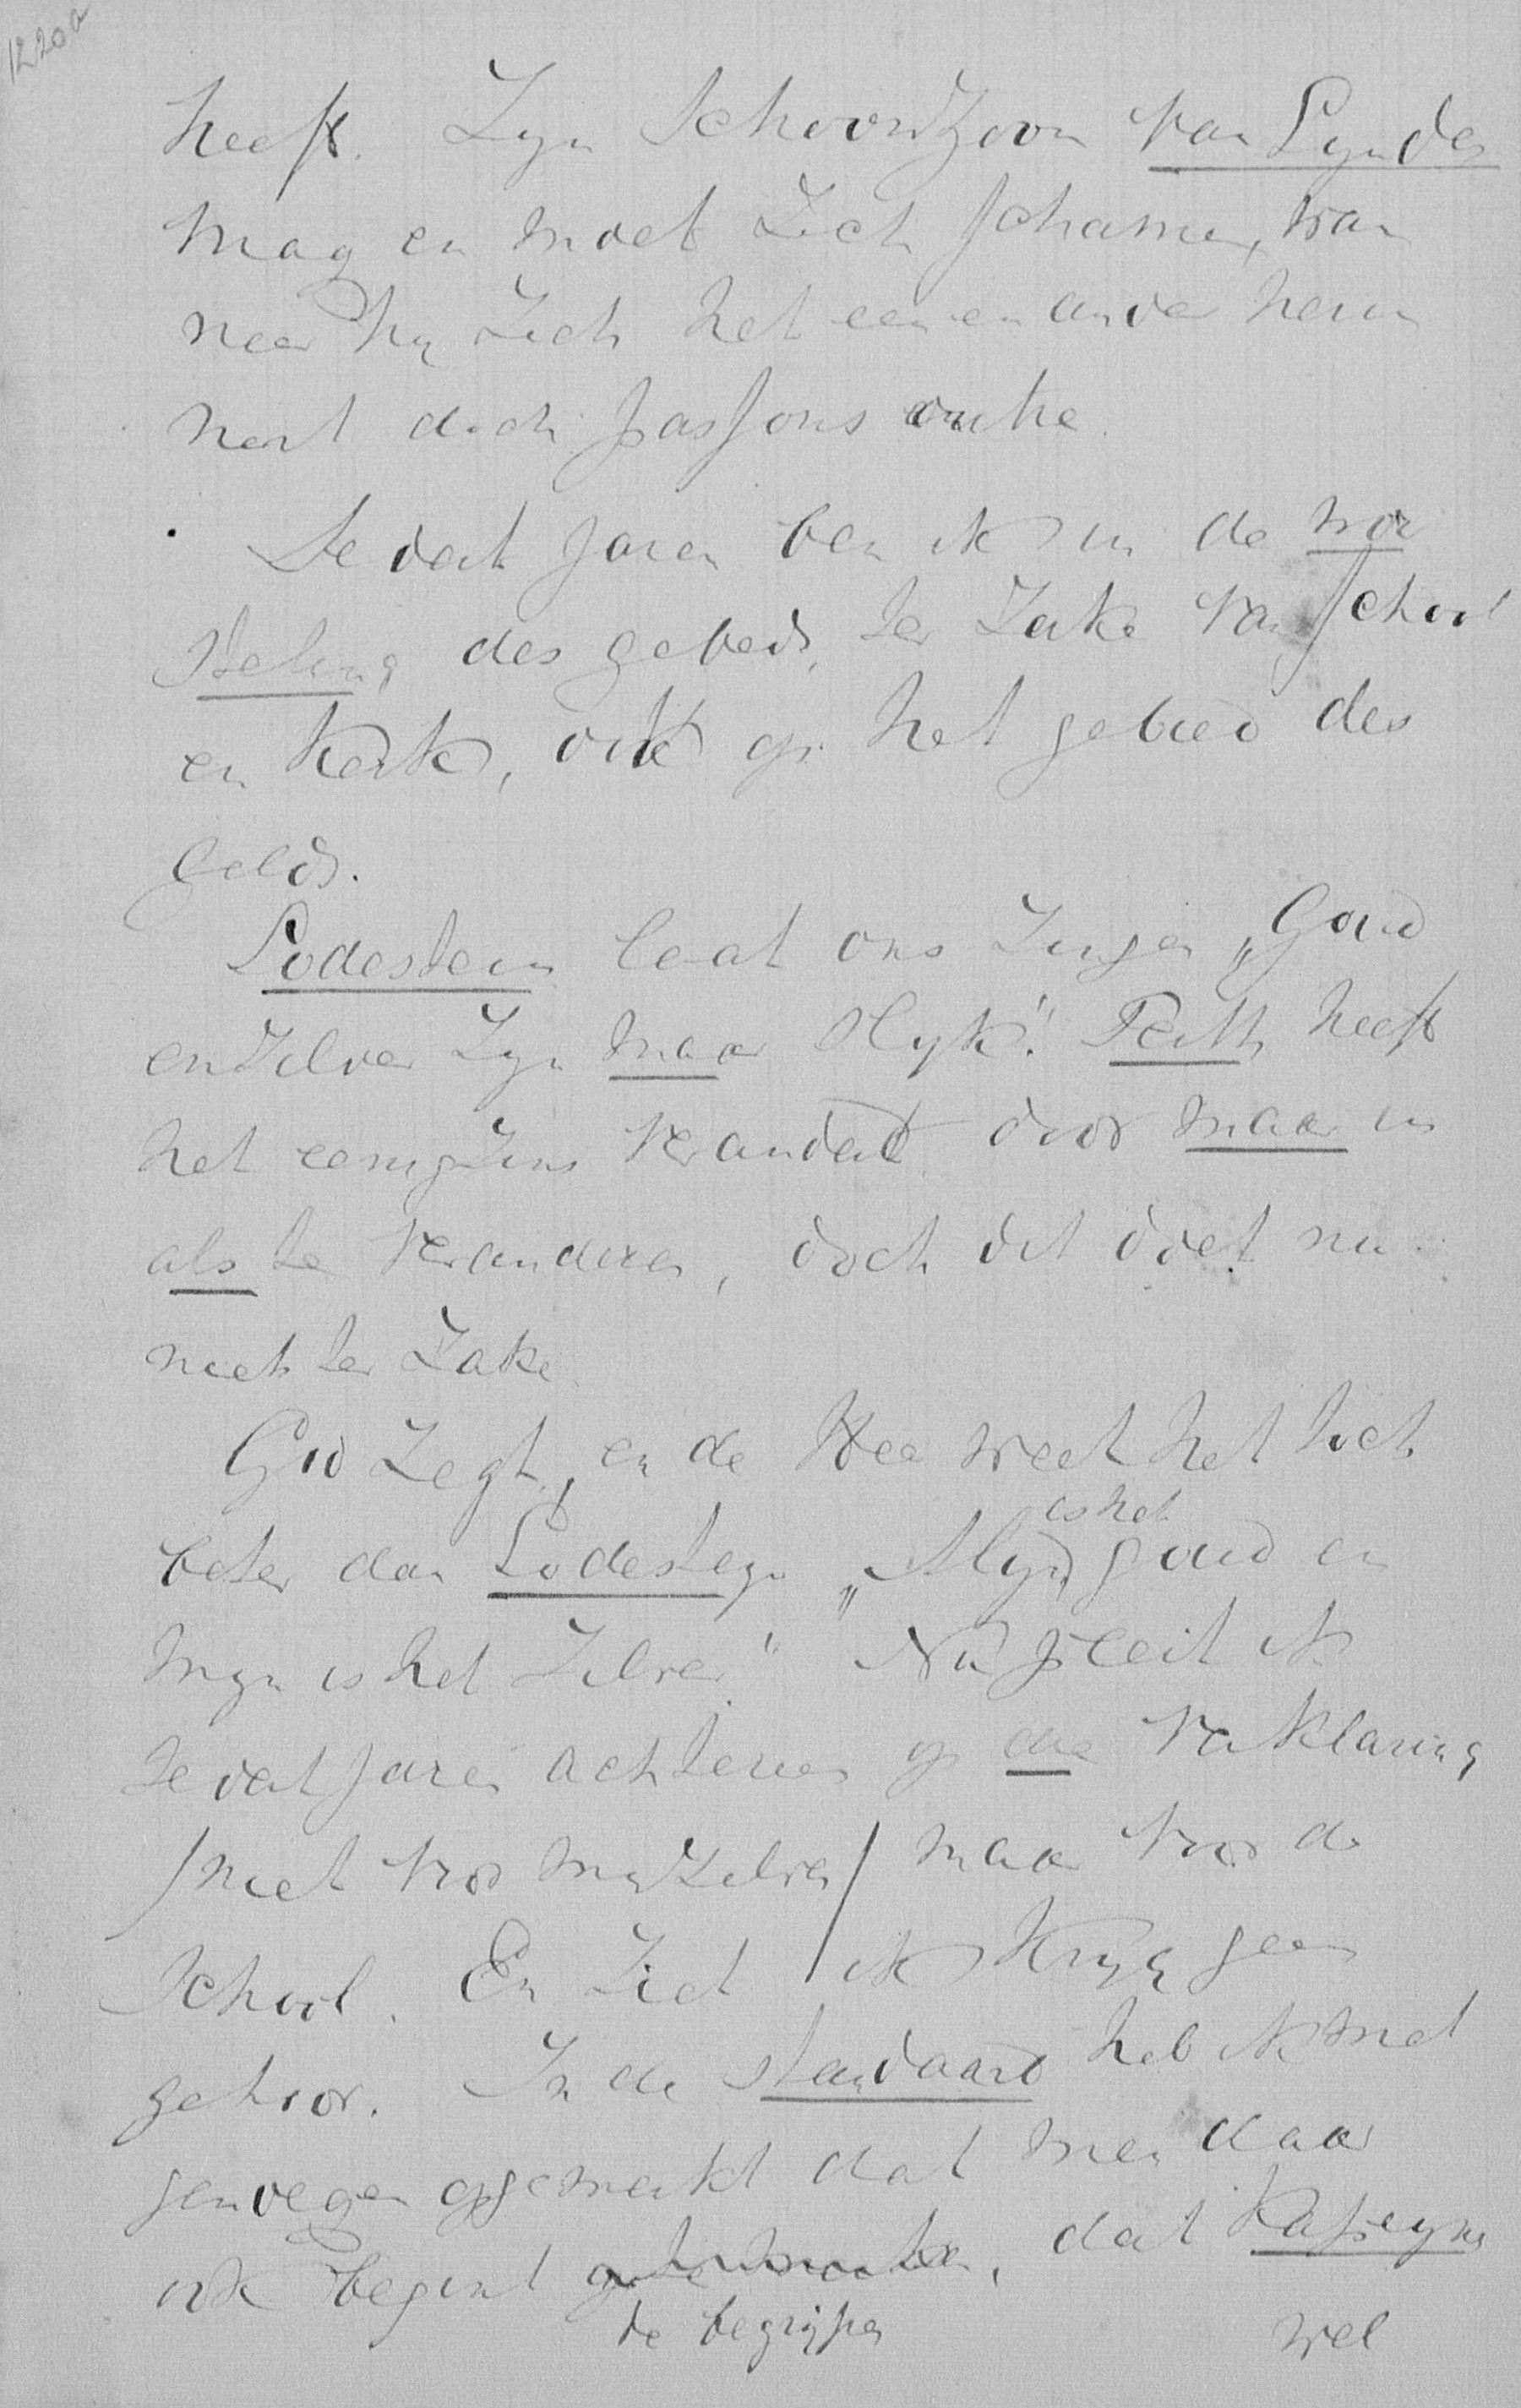 1220a
heeft. Zyn Schoonzoon van Lynden
mag en moet zich schamen, wan
neer hy zich het een en ander herin
nert doch passons outre.
Sedert jaren ben ik in de wor
steling des gebeds, ter zake van school
en kerk, ook op het gebied des
gelds.
Lodestein laat ons zingen „Goud
en zilver zyn maar slyk." Pert heeft
het eenigzins veranderd door maar in
als te veranderen, doch dit doet nu
niet ter zake.
God zegt, en de Heer weet het toch
is het
beter dan Lodesteyn „Myn goud en
myn is het zilver." Nu pleit ik
sedert jaren achtereen op die verklaring
/niet voor myzelven/ maar voor de
School. En ziet ik kryg geen
gehoor. In de Standaard heb ik met
genoegen opgemerkt dat men daar
ook begint , dat Kapseyne
te begrijpen wel